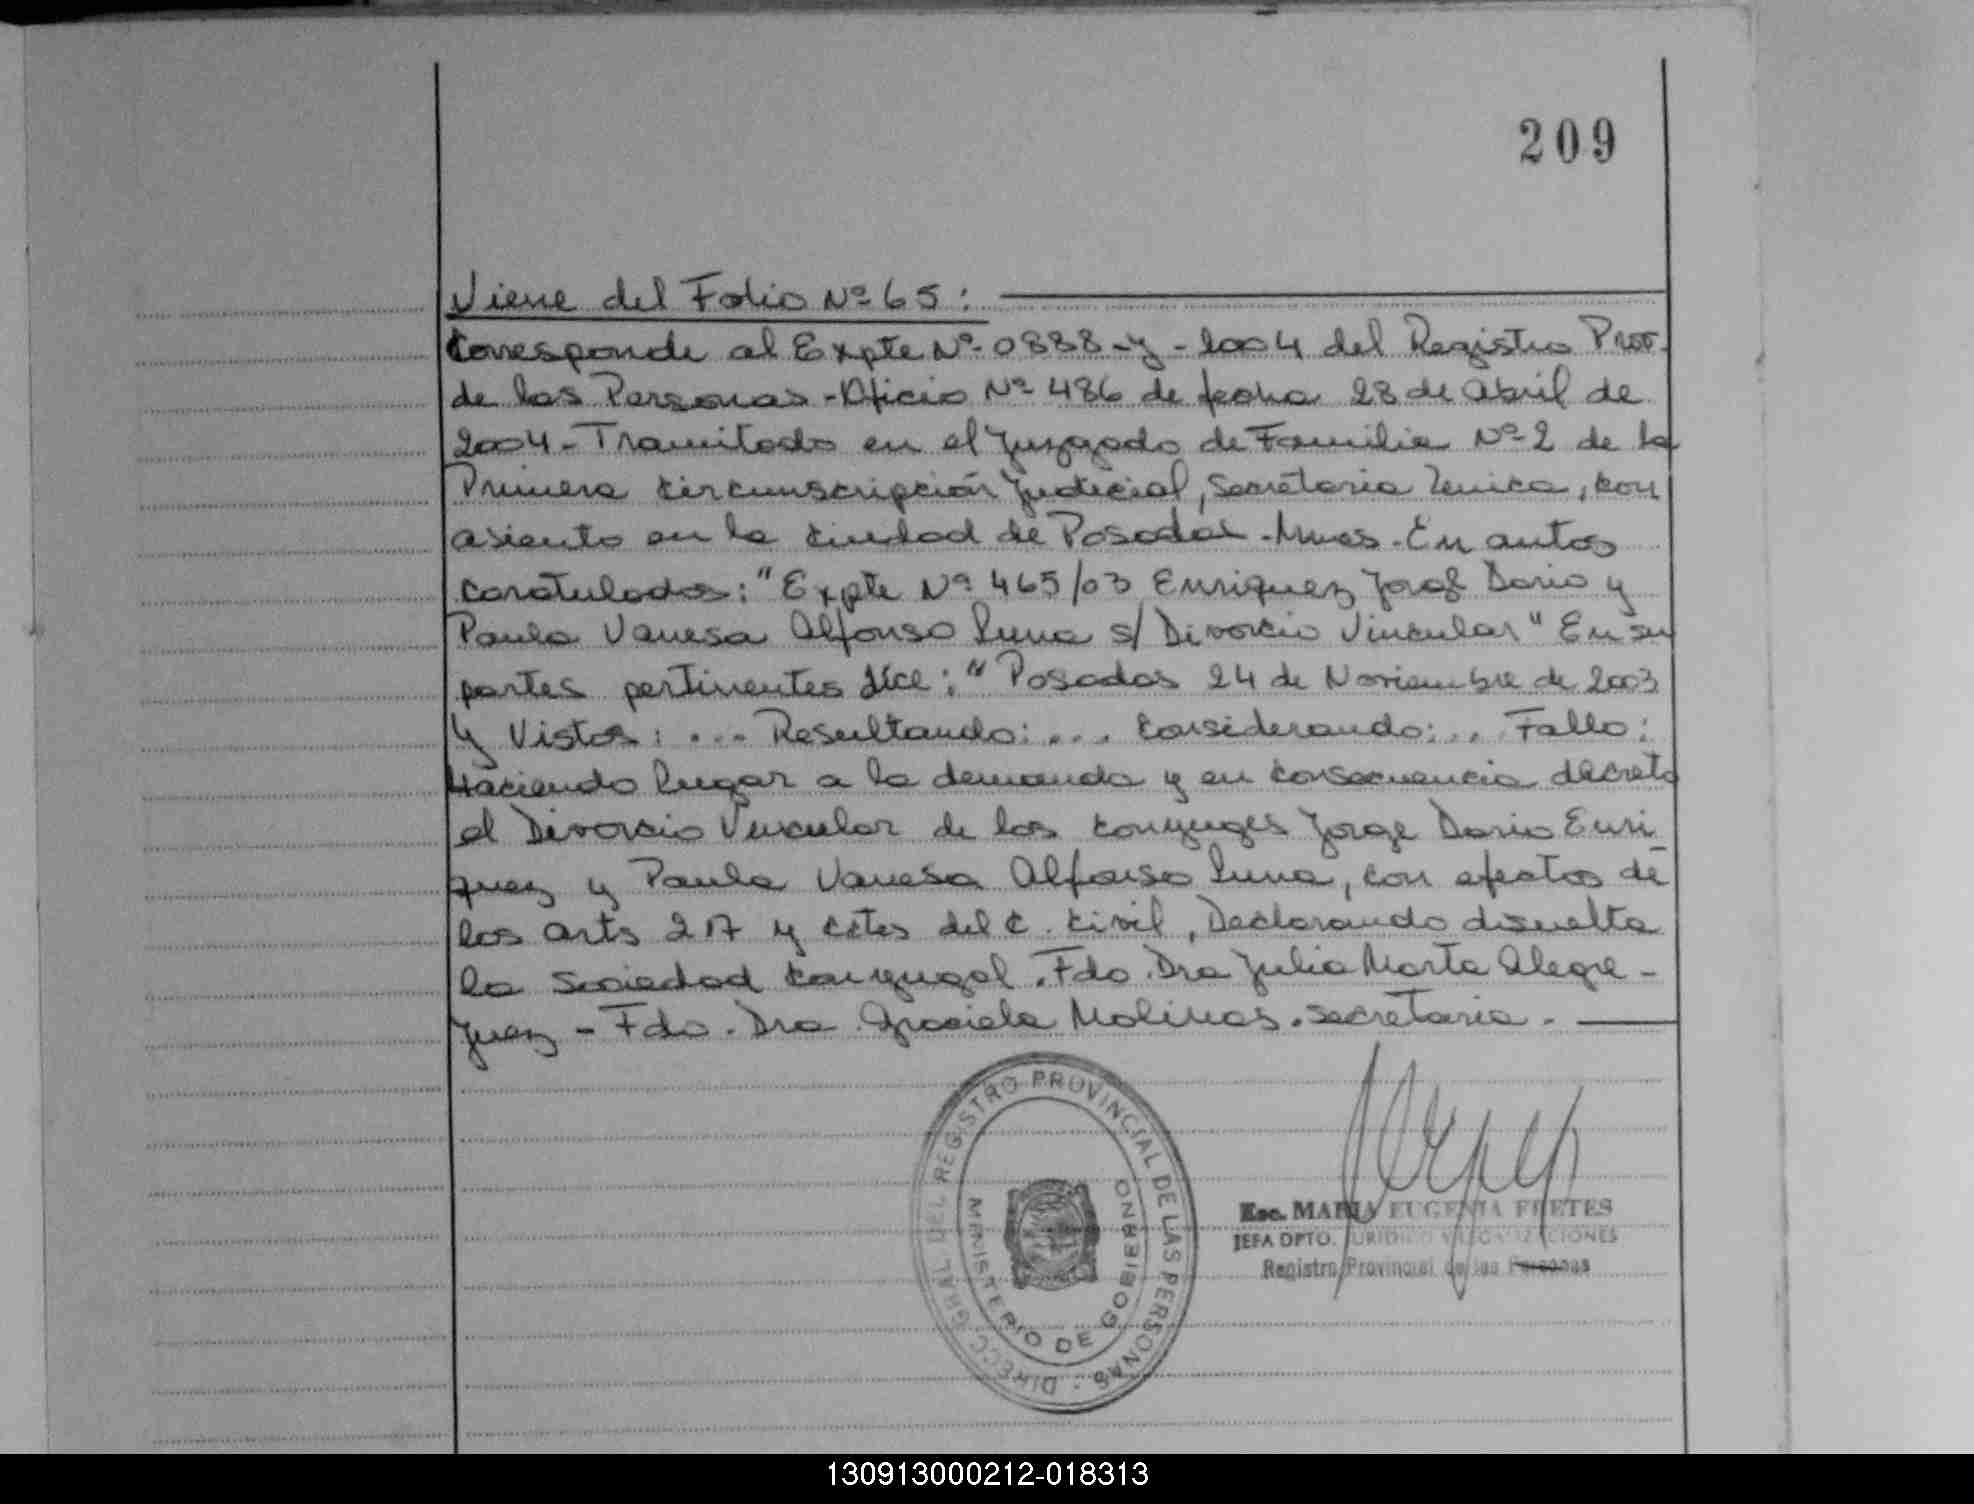 209
Viene del Folio Nº 65:
Corresponde al Expte Nº 0888-y-2004 del Registro Prov.
de las Personas - Oficio Nº 486 de fecha 28 de Abril de
2004 - Tramitado en el Juzgado de Familia Nº 2 de la
Primera Circunscripción Judicial, Secretaria Unica, con
asiento en la Ciudad de Posadas - Mnes. En autos
caratulados: "Expte Nº 465/03 Enriquez Jorge Dario y
Paula Vanesa Alfonso Luna s/ Divorcio Vincular" En su
partes pertinentes dice: "Posadas 24 de Noviembre de 2003
Y Vistos: ... Resultando: ... Considerando: ... Fallo:
Haciendo lugar a la demanda y en consecuencia decreto
el Divorcio Vincular de los conyuges Jorge Dario Enri
quez y Paula Vanesa Alfonso Luna, con efectos de
los arts 217 y cctes del C. Civil, Declarando disuelta
la sociedad conyugal. Fdo. Dra Julia Marta Alegre -
Juez - Fdo. Dra Graciela Molinas. Secretaria. -
DIRECC. GRAL. DEL REGISTRO PROVINCIAL DE LAS PERSONAS
MINISTERIO DE GOBIERNO
Esc. MARIA EUGENIA FRETES
JEFA DPTO. JURIDICO Y LEGALIZACIONES
Registro Provincial de las Personas
130913000212-018313